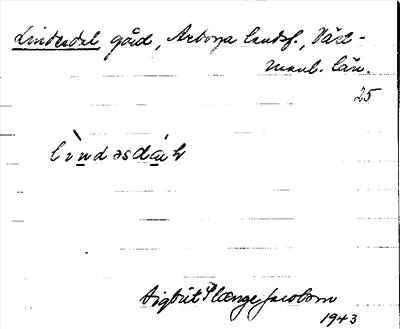 Lindesdal gård, Arboga landsf., Väst-
manl. län.
25
lìndəsdáɩ
Sigbrit Plænge Jacobson
1943